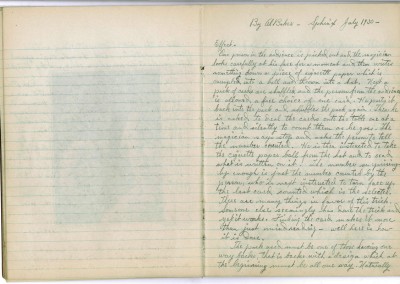 By Al Baker - Sphinx July 1930 -
Effect -
One person in the audience is picked out and the magician
looks carefully at his face for a moment and then writes
something down on a piece of cigarette paper which is
crumpled into a ball and thrown into a hat. Next a
pack of cards is shuffled and the person from the audience
is allowed a free choice of one card. He puts it
back into the pack and shuffles the pack again. Then he
is asked to deal the cards onto the table one at a
time and silently to count them as he goes. The
magician stops and asks the person to tell
the number counted. He is then instructed to take
the cigarette paper ball from the hat and to read
what is written on it! The number
enough is just the number counted by the
person who is next instructed to turn face up
the last card counted which is the selected.
There are many things in favor of this trick.
Someone else seemingly does the trick and
yet it works. Finding the card makes it more
than just mindreading - well here is how
it is done.
The pack used must be one of those having one
way backs, that is backs with a design which at
the beginning must be all one way. Naturally